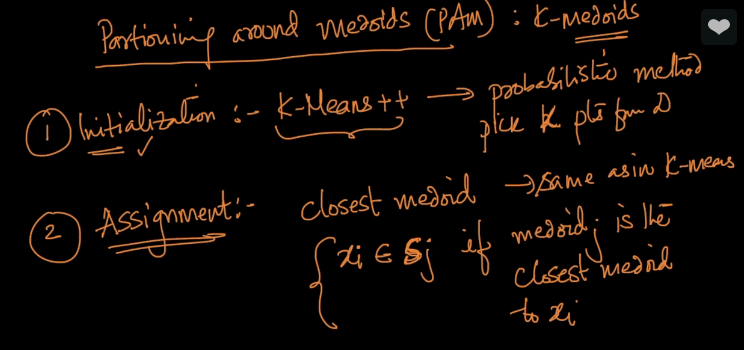 Partioning around medoids (PAM) : K-medoids
① Initialization :- K-Means++ → probabilistic method
pick K pts from D
② Assignment:- closest medoid → same as in K-means
xi ∈ Sj if medoidj is the
closest medoid
to xi